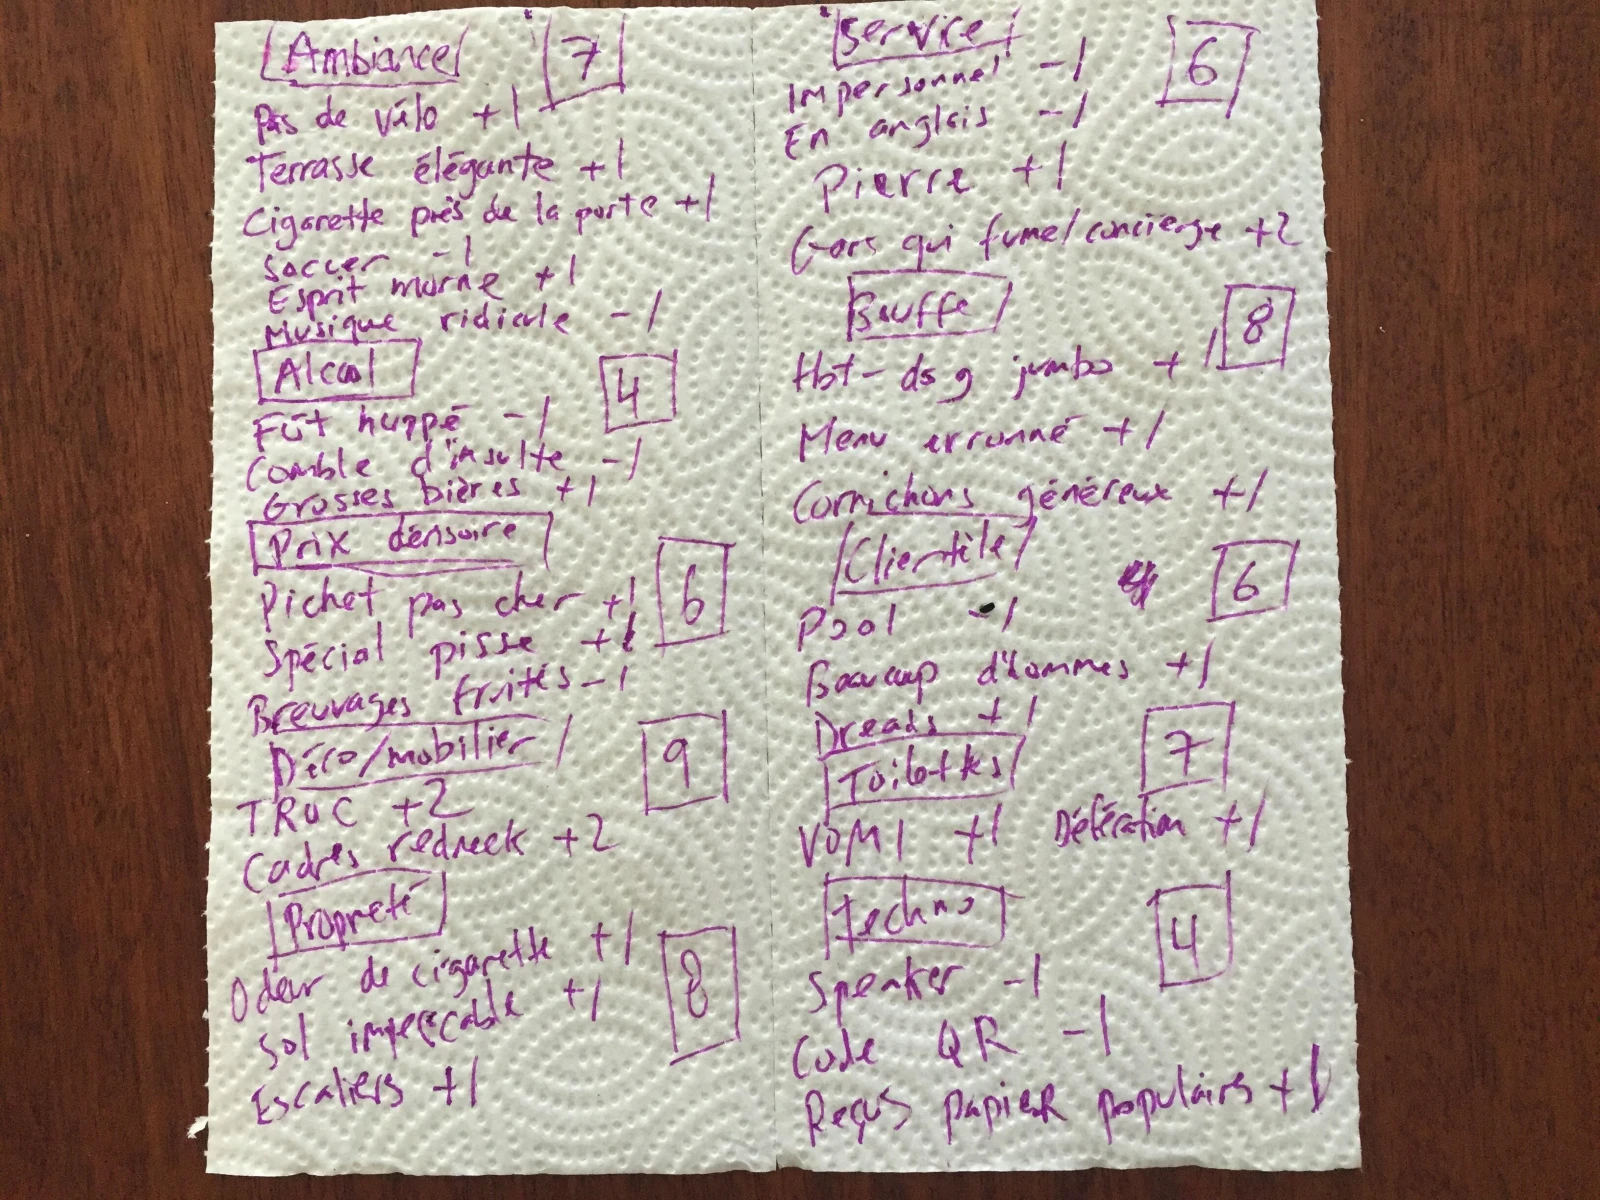 Ambiance 7
Pas de vélo +1
Terrasse élégante +1
Cigarette près de la porte +1
Soccer -1
Esprit morne +1
Musique ridicule -1
Alcool 4
Fût huppé -1
Comble d'insulte -1
Grosses bières +1
Prix dérisoire 6
Pichet pas cher +1
Spécial pisse +1
Breuvages fruités -1
Déco/mobilier 9
TRUC +2
Cadres redneck +2
Propreté 8
Odeur de cigarette +1
Sol impeccable +1
Escaliers +1
Service 6
Impersonnel -1
En anglais -1
Pierre +1
Gars qui fume/concierge +2
Bouffe 8
Hot-dog jumbo +1
Menu erronné +1
Cornichons généreux +1
Clientèle 6
Pool -1
Beaucoup d'hommes +1
Dreads +1
Toilettes 7
VOMI +1 Défécation +1
Techno 4
Speaker -1
Code QR -1
Reçus papier populaires +1